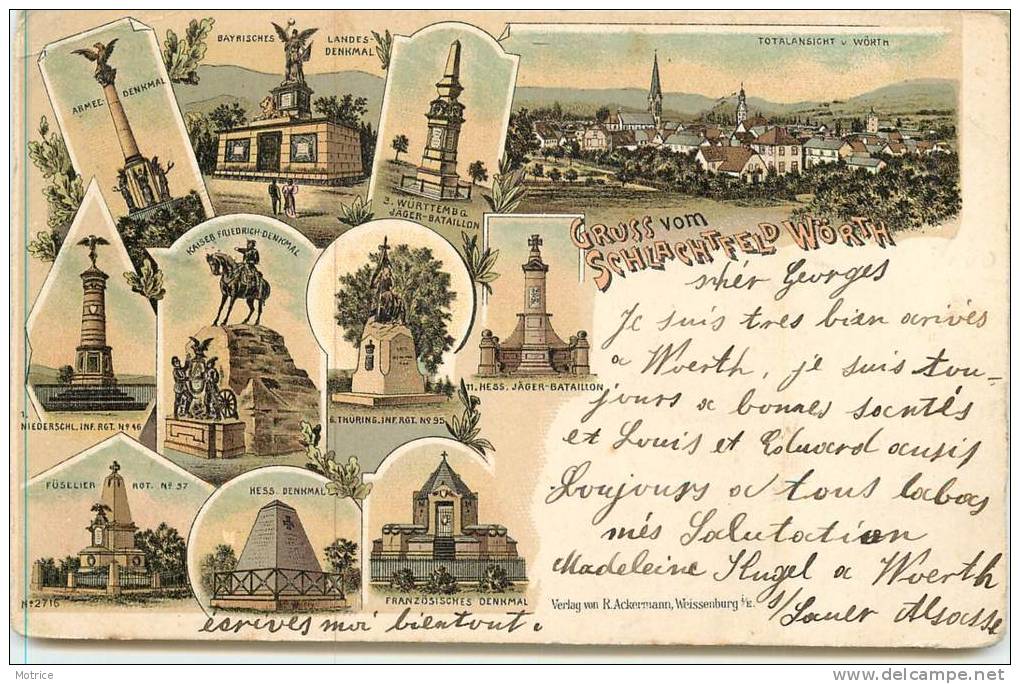 ARMEE-DENKMAL
BAYRISCHES LANDES-
DENKMAL
3. WÜRTTEMBG.
JÄGER-BATAILLON
TOTALANSICHT v. WÖRTH
GRUSS vom
SCHLACHTFELD WÖRTH
1.
NIEDERSCHL. INF. RGT. No 46
KAISER FRIEDRICH-DENKMAL
6. THÜRING. INF. RGT. No 95
11. HESS. JÄGER-BATAILLON
FÜSELIER RGT. No 37
HESS. DENKMAL
FRANZÖSISCHES DENKMAL
No 2715
Verlag von R. Ackermann, Weissenburg i/E.
mer Georges
Je suis tres bien arivés
a Wœrth, je suis tou-
jours a bonnes santés
et Louis et Eduard ausi
Toujours a tous labas
més Salutation
Madeleine Kugel a Wœrth
s/Sauer Alsasse
écrives moi bientout.
Motrice
delcampe.net